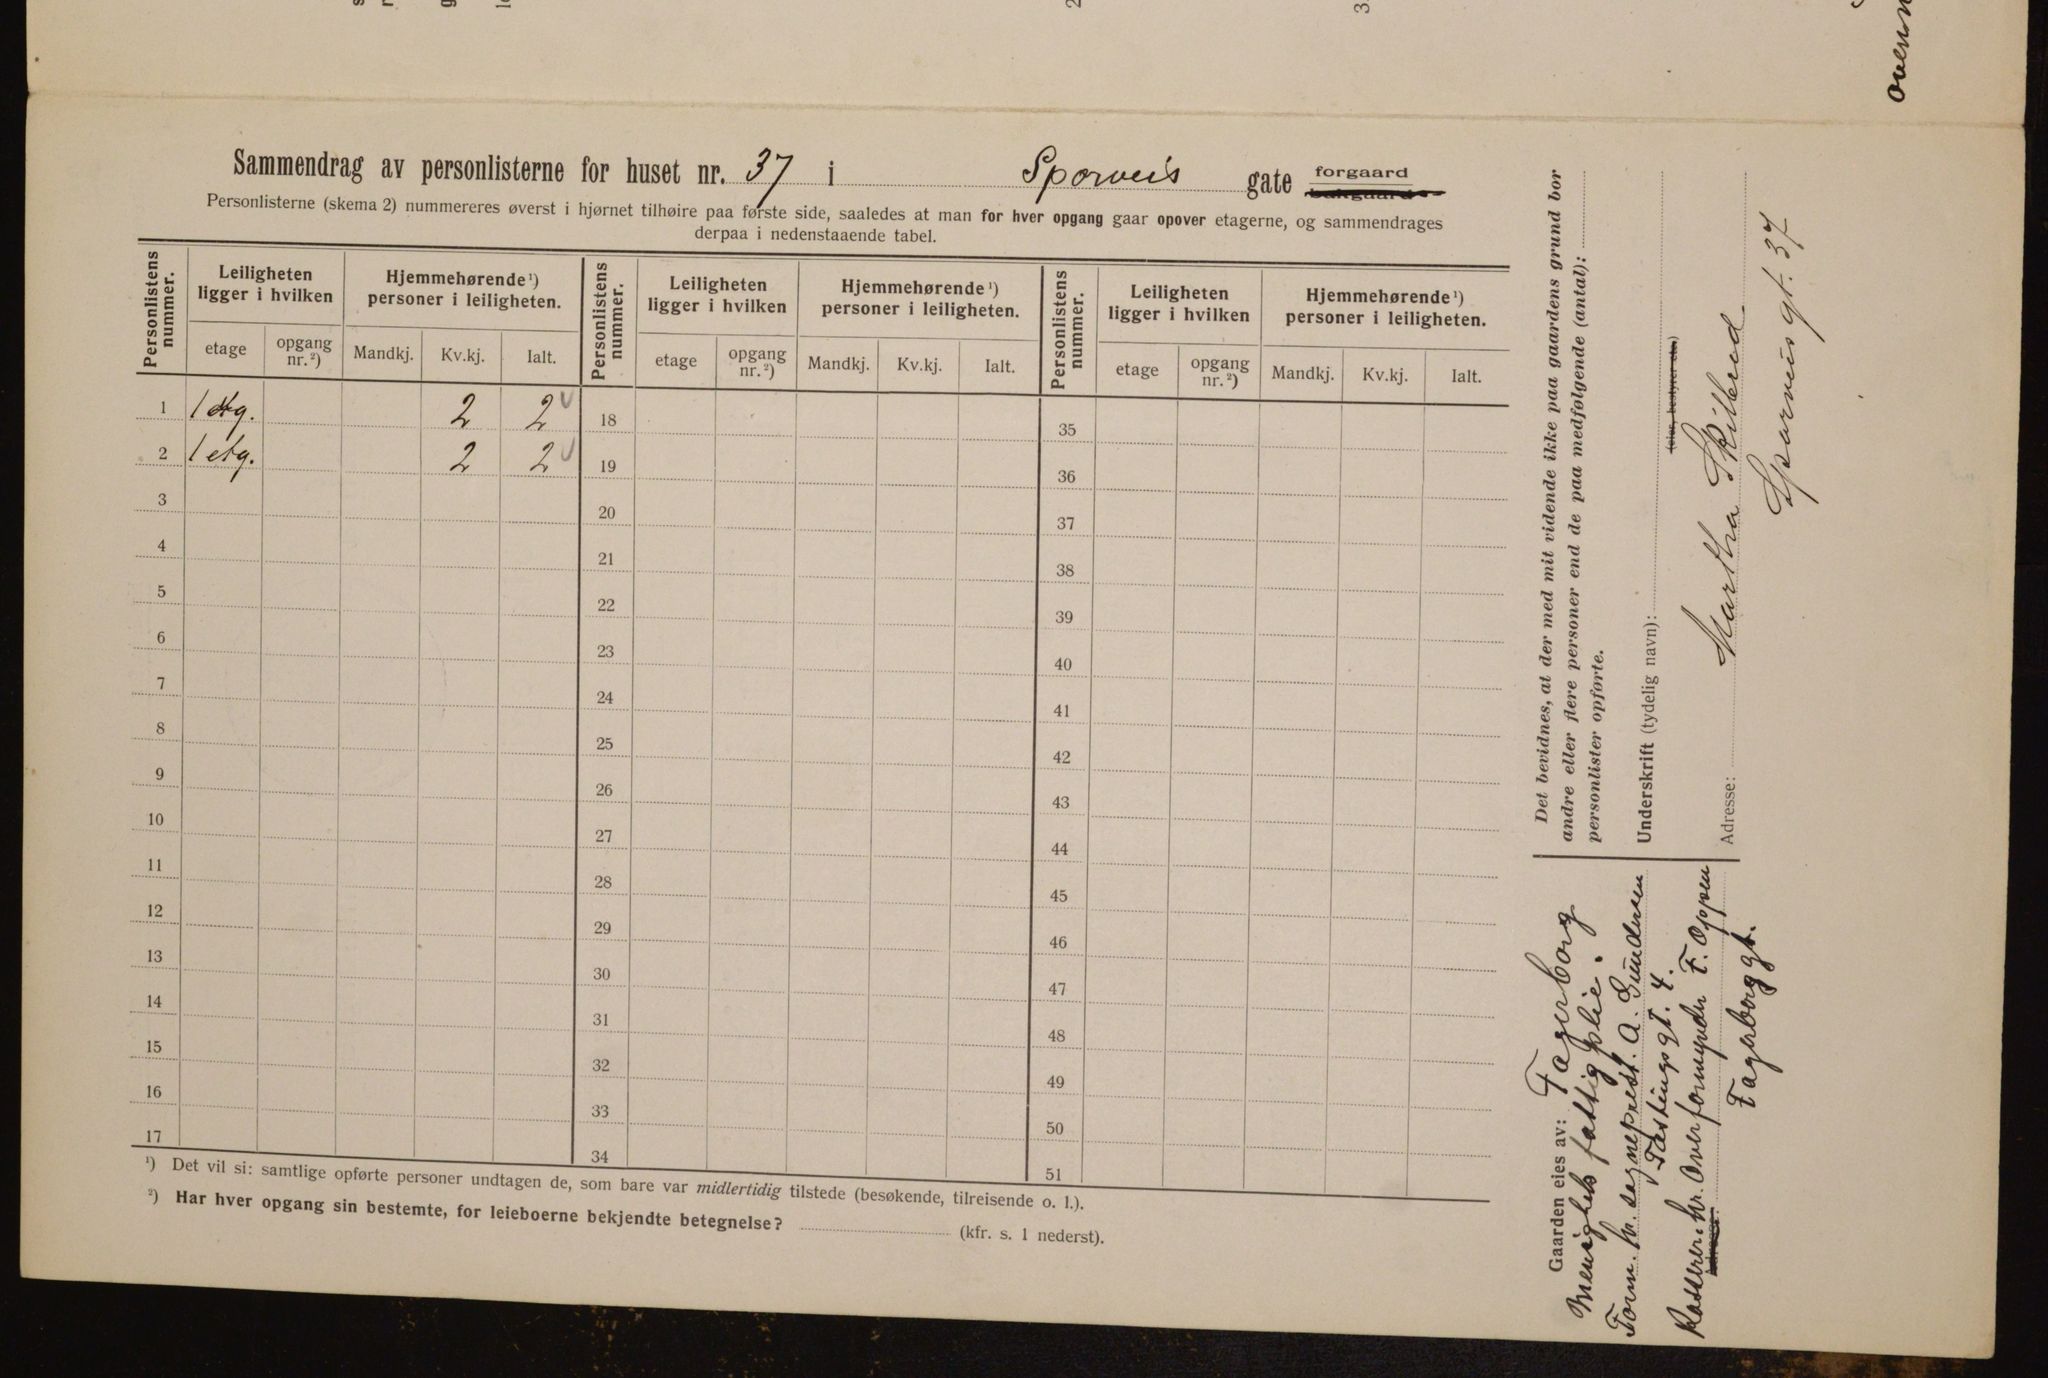 Sammendrag av personlisterne for huset nr. 37 i Sporveis gate forgaard
Personlisterne (skema 2) nummereres øverst i hjørnet tilhøire paa første side, saaledes at man for hver opgang gaar opover etagerne, og sammendrages
derpaa i nedenstaaende tabel.
Personlistens nummer. Leiligheten ligger i hvilken Hjemmehørende ¹) personer i leiligheten. Personlistens nummer. Leiligheten ligger i hvilken Hjemmehørende ¹) personer i leiligheten. Personlistens nummer. Leiligheten ligger i hvilken Hjemmehørende ¹) personer i leiligheten.
etage opgang nr. ²) Mandkj. Kv.kj. Ialt. etage opgang nr. ²) Mandkj. Kv.kj. Ialt. etage opgang nr. ²) Mandkj. Kv.kj. Ialt.
1 1 etg. 2 2 18 35
2 1 etg. 2 2 19 36
3 20 37
4 21 38
5 22 39
6 23 40
7 24 41
8 25 42
9 26 43
10 27 44
11 28 45
12 29 46
13 30 47
14 31 48
15 32 49
16 33 50
17 34 51
¹) Det vil si: samtlige opførte personer undtagen de, som bare var midlertidig tilstede (besøkende, tilreisende o. l.).
²) Har hver opgang sin bestemte, for leieboerne bekjendte betegnelse? (kfr. s. 1 nederst).
Det bevidnes, at der med mit vidende ikke paa gaardens grund bor
andre eller flere personer end de paa medfølgende (antal):
personlister opførte.
Underskrift (tydelig navn):
(eier, bestyrer etc.)
Martha Skilbred
Adresse:
Sporveis gt. 37
Gaarden eies av: Fagerborg
Menighets fattigpleie.
Form. hr. sogneprest. A. Gundersen
gt. 4.
Kasserer. hr. Overformynder F. Oppen
Adresse:
Fagerborggt.